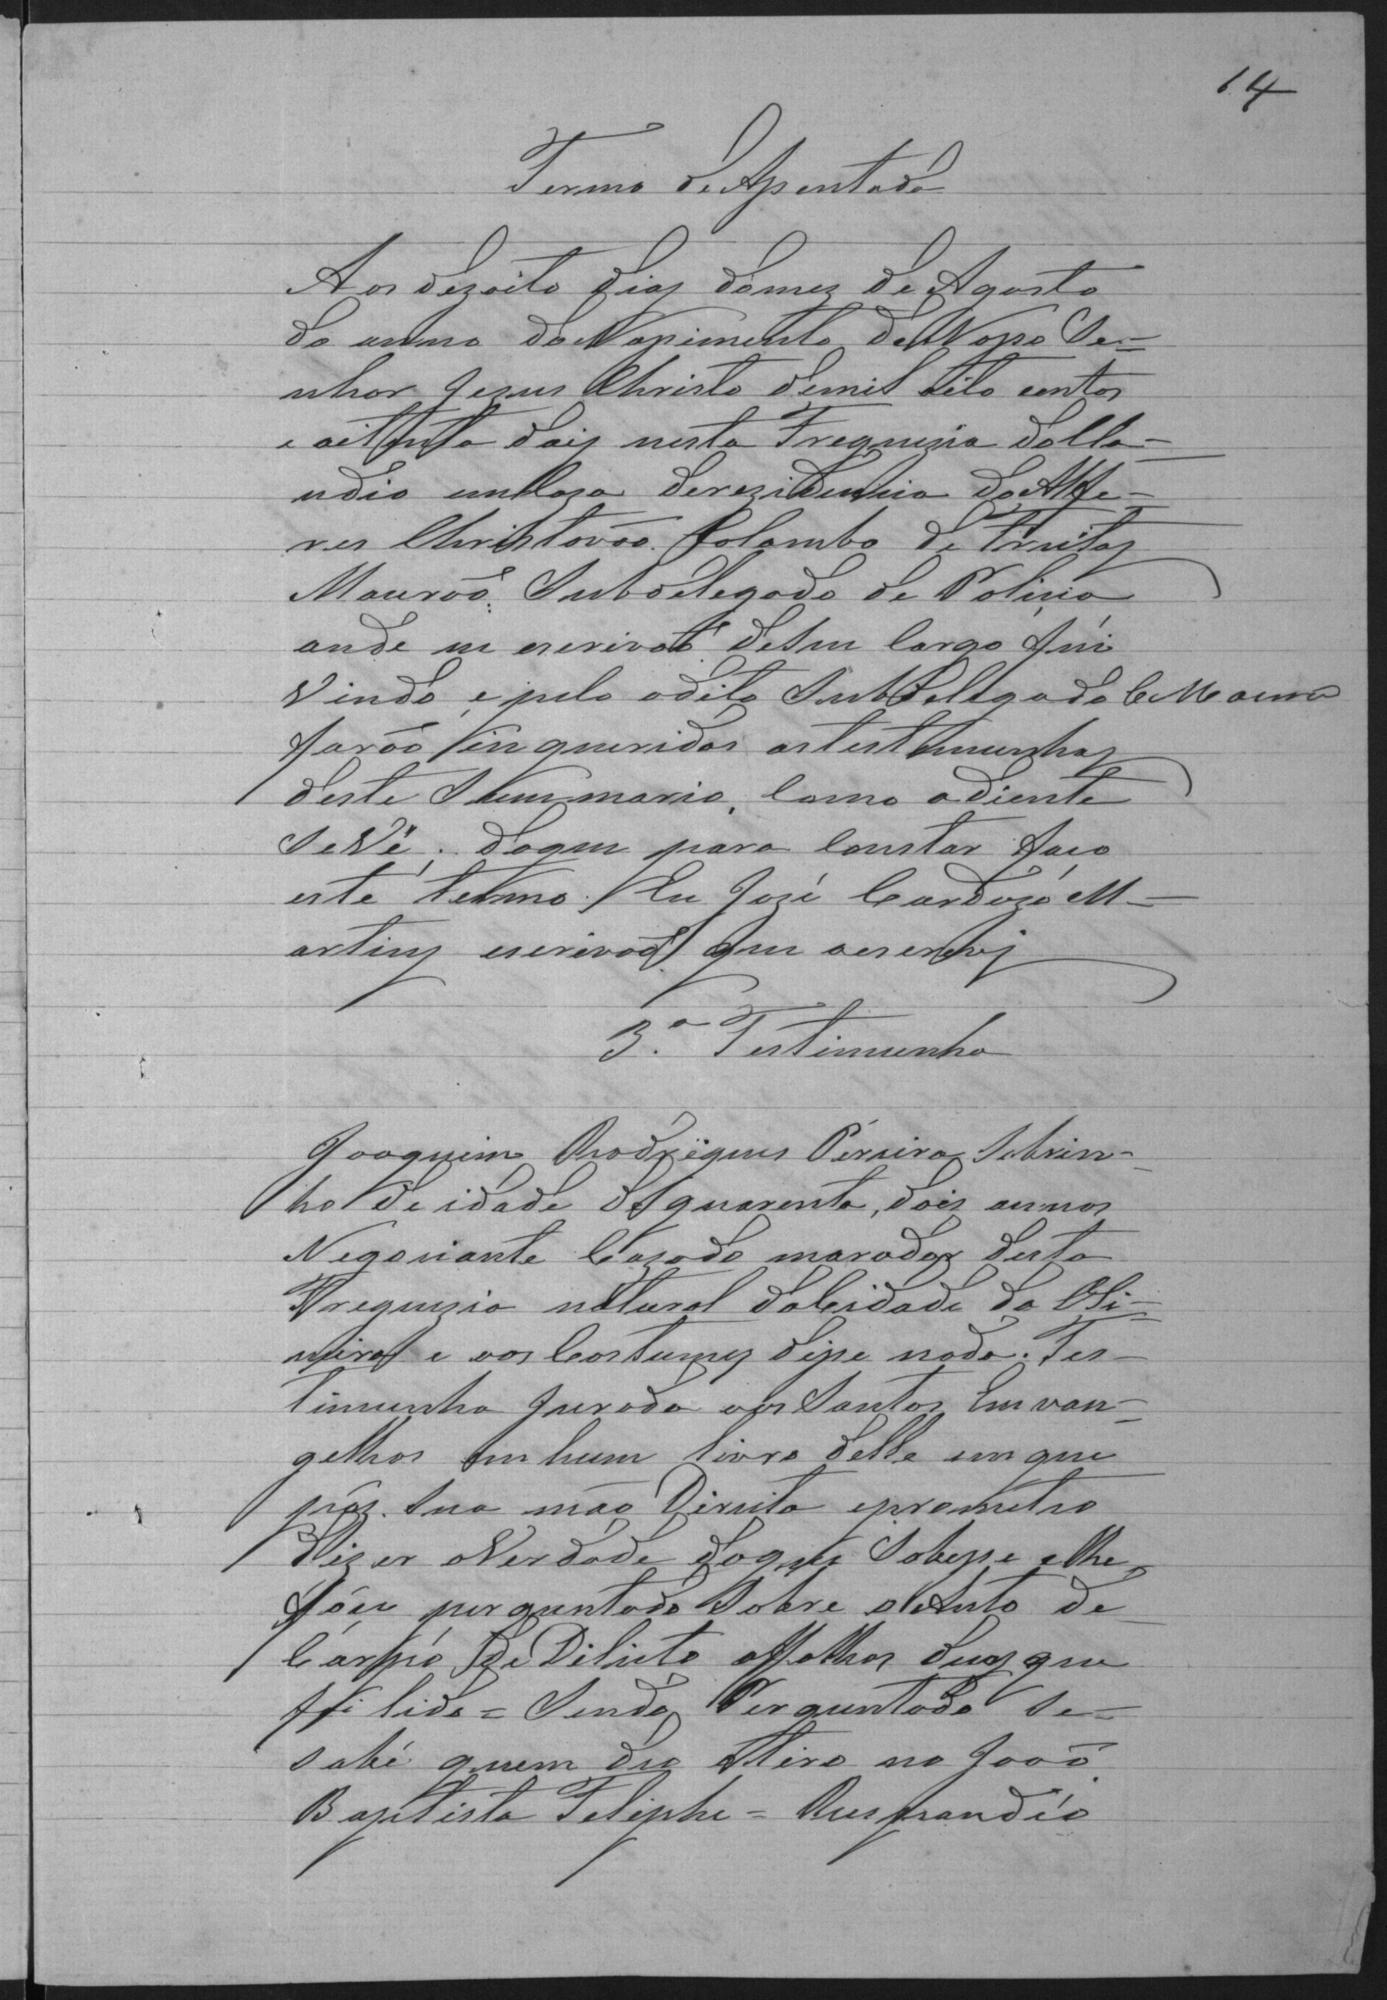 14
Termo de Apentada
Aos dezoito dias do mez de Agosto
do anno do Nascimento de Nosso Se-
nhor Jesus Christo de mil oito centos
e oitenta dois nesta Freguezia do Clau-
udio em Caza de rezidencia do Alfe-
res Christovão Colombo de Freitas
Mourão Subdelegado de Policia
onde eu escrivão de seu Cargo fui
Vindo, e pelo o dito Subdelegado C Mourão
farão inqueridas as testimunhas
deste Summario, Como adiente
se Vê; do que para Constar faço
este termo. Eu José Cardozo M-
artins escrivão que o escrevj
3.ª Testimunha
Joaquim Rodrigues Pereira Sobrin-
ho de idade de quarenta, dois annos
Negociante Cazado morador desta
Freguezia natural da Cidade da Oli-
veira e aos Costumes disse nada. Tes-
timunha Jurada aos Santos Emvan-
gelhos em hum livro delle em que
pôz sua mão Direita e prometeo
Dizer a Verdade do que Sobesse e lhe
fôce perguntado Sobre o Auto de
Corpo de Delicto a folhas duas que
foi lido = Sendo Perguntado se-
sabe quem deo o tiro no João
Baptista Feliphe = Respondeo